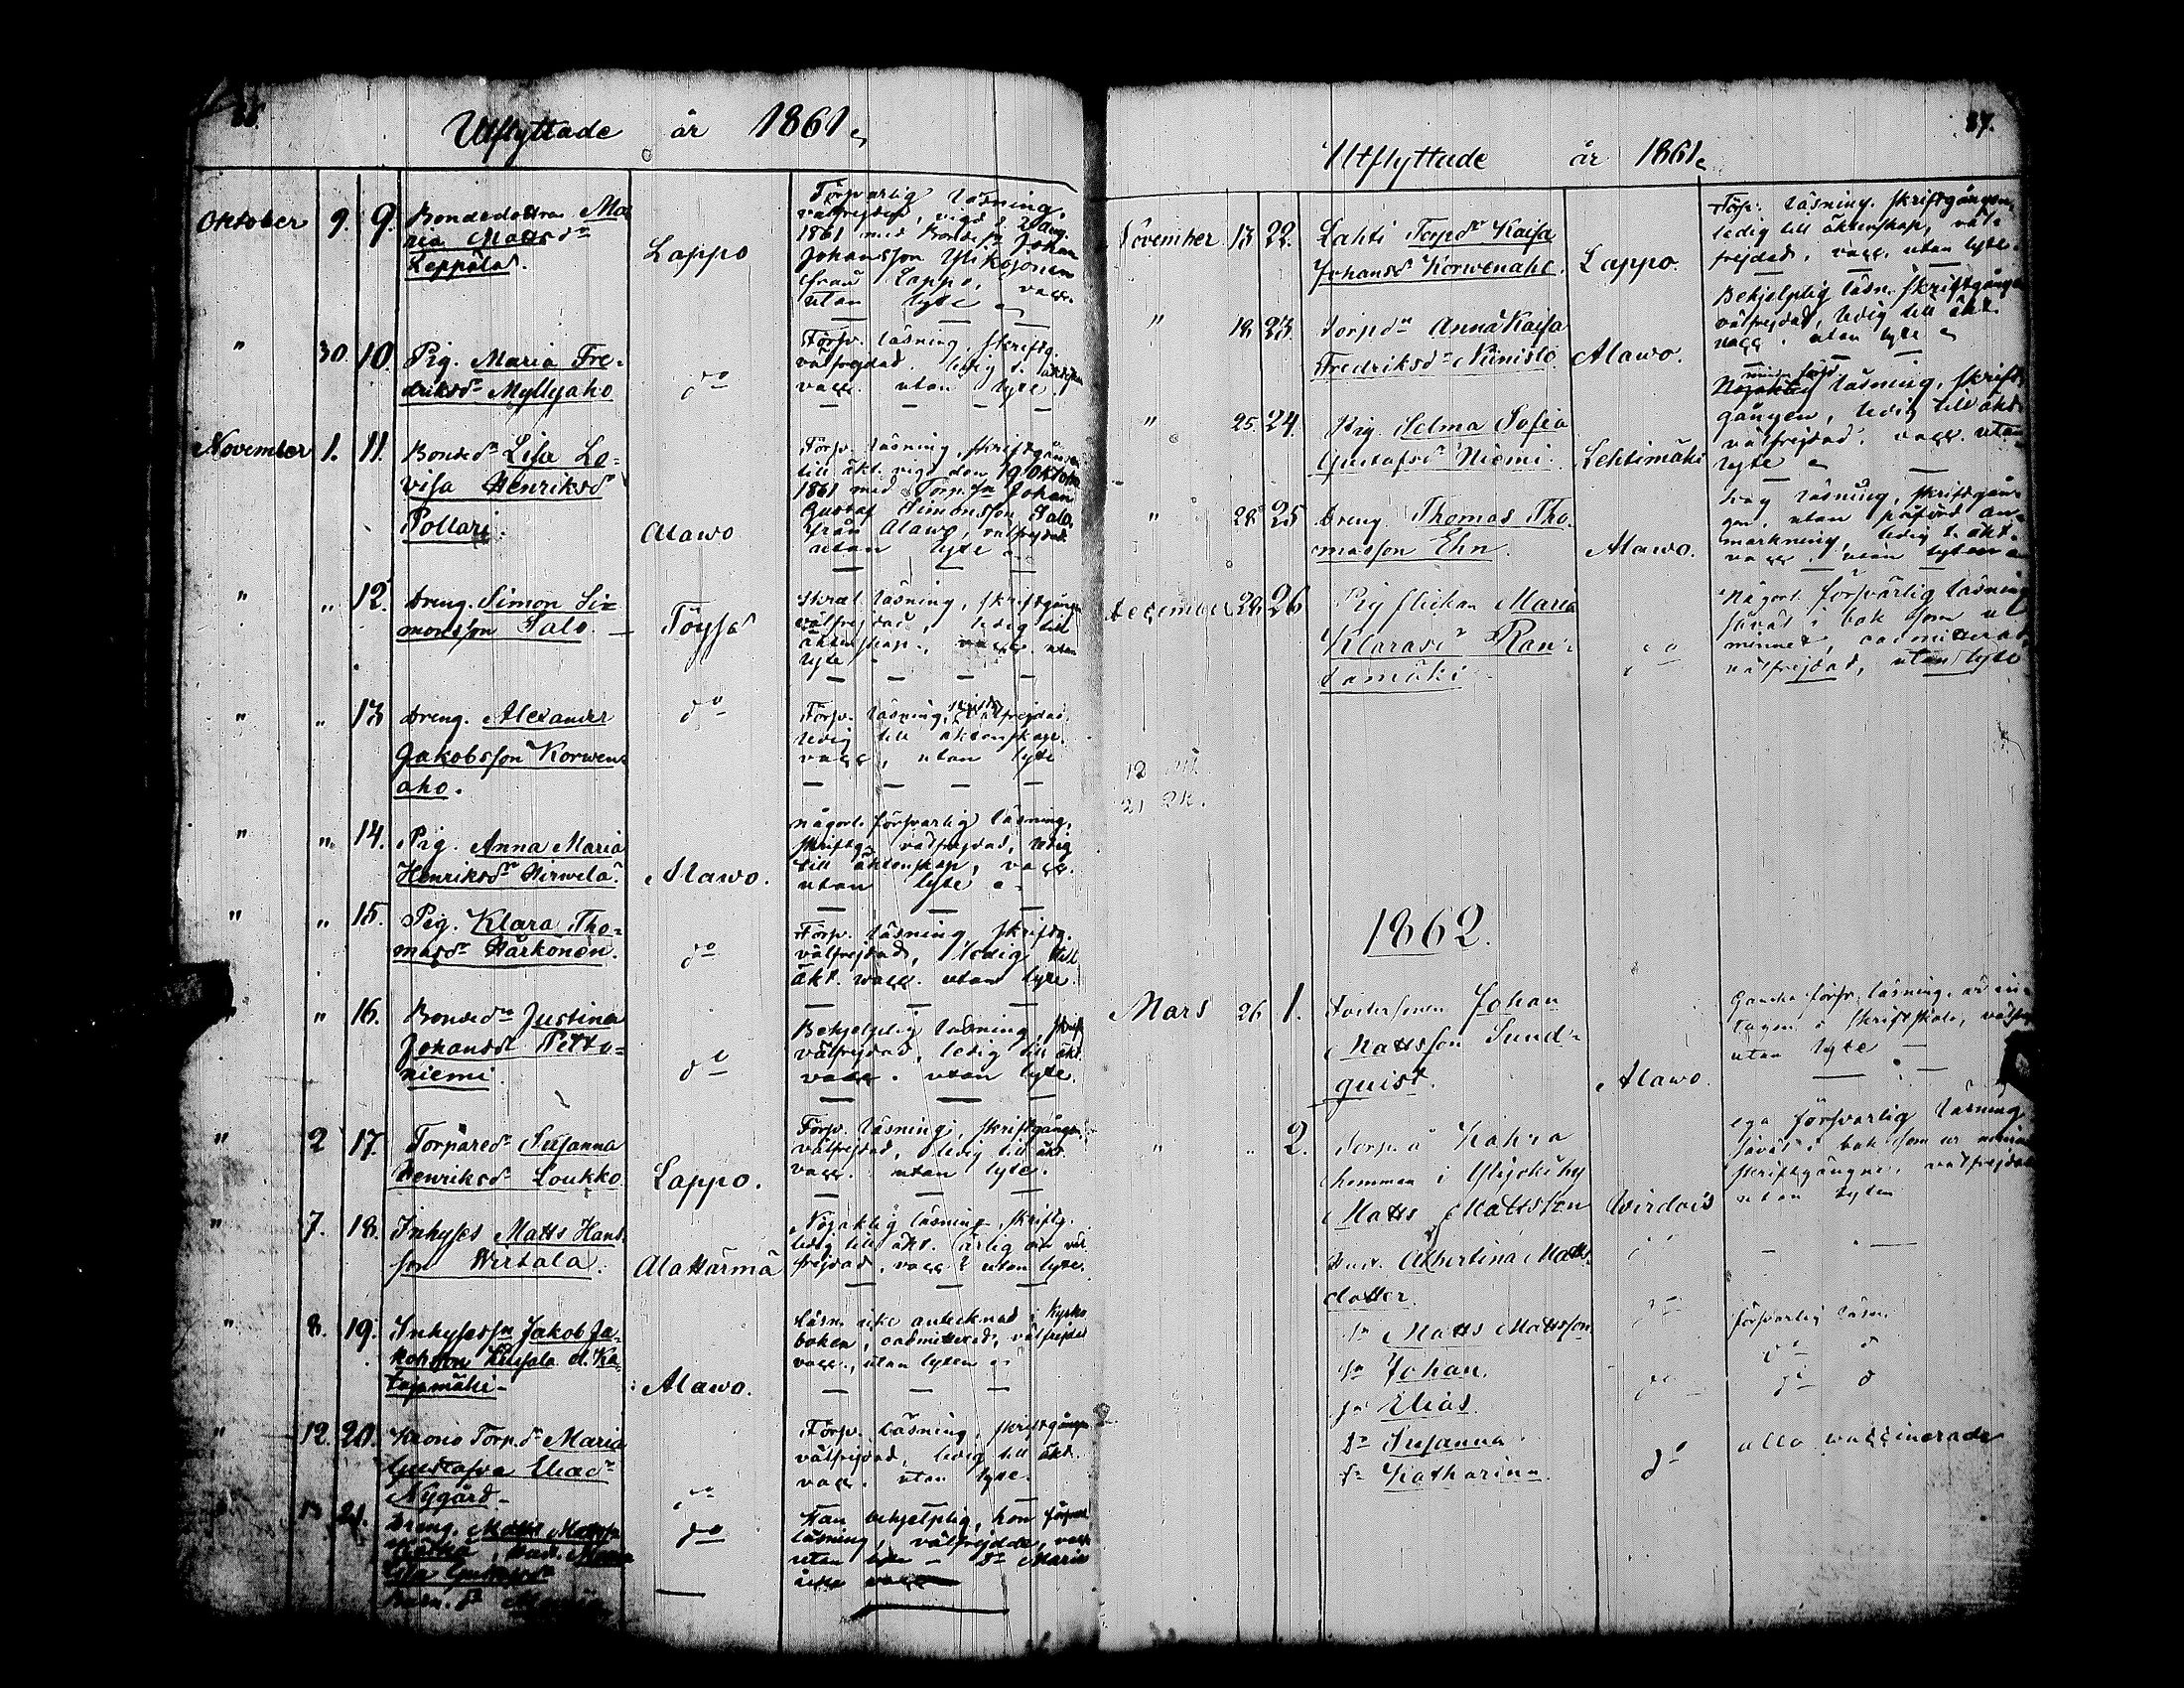 Utflyttade år 1861
Oktober 9. 9. Bondedottren Ma
ria Matts dr
Leppälä.
Lappo
Försvarlig läsning,
välfrejdad, vigd d. 2 aug.
1861 med Bonde sn Johan
Johansson Ylikojonen
från Lappo, vacc.
utan lyte
" 30. 10. Pig. Maria Fre-
driksdr Myllyaho
do
Försv. läsning, skriftg.
välfrejdad. ledig t. äktensk.
vacc. utan lyte.
November 1. 11. Bondedr Lisa Lo-
visa Henriksdr
Pollari.
Alawo
Försv. läsning, skriftgången
till äkt. vigd den 19 Oktober
1861 med Torp. sn Johan
Gustaf Simonsson Salo,
från Alawo, välfrejdad
utan lyte
" " 12. Dreng. Simon Si-
monsson Salo.
Töysä
läsning, skriftgången
välfrejdad, ledig till
äktenskap, vacc. utan
lyte
" " 13 Dreng. Alexander
Jakobsson Korwen-
aho.
do
Försv. läsning, skriftg. välfrejdad.
ledig till äktenskap.
vacc, utan lyte
" " 14. Pig. Anna Maria
Henriksdr Hirwelä.
Alawo.
någorl. försvarlig läsning,
skriftg. välfrejdad, ledig
till äktenskap, vacc.
utan lyte
" " 15. Pig. Klara Tho-
masdr Härkönen.
do
Försv. läsning skriftg.
välfrejdad, ledig till
äkt. wacc. utan lyte.
" " 16. Bondedr Justina
Johansdr
niemi.
do
Behjelplig läsning, skrift
välfrejdad, ledig till äkt.
vacc. utan lyte.
" 2 17. Torparedr Susanna
Henriksdr Loukko.
Lappo.
Försv. läsning, skriftgången
välfrejdad, ledig till äkt.
vacc. utan lyte.
" 7. 18. Inhyses Matts Hans
son Wirtala.
Alahärmä
Nöjaktig läsning, skriftg.
ledig till äkt. ärlig och väl
frejdad, vacc. utan lyte.
" 8. 19. Inhysessn Jakob Ja-
kobsson
mäki
Alawo.
Läsn. icke antecknad i Kyrko
boken, oadmitterad, välfrejdad
vacc., utan lyten
" 12. 20. Krono Torp. dr Maria
Gustafva Eliadr
Nygård
do
Försv. läsning, skriftgången
välfrejdad, ledig till äkt.
vacc. utan lyte.
13 21. Dreng. Matts
do
Han behjelplig, hon försvarl
läsning, välfrejdade, vacc
utan lyte – dr Maria
icke vacc
87.
Utflyttade år 1861
November 13 22. Lahti Torpdr Kaisa
Johansdr Korwenaho.
Lappo.
Försv. läsning. skriftgången
ledig till äktenskap, väl-
frejdad, vacc. utan lyte.
" 18 23. Torpdr Anna Kaisa
Fredriksdr Niinistö.
Alawo.
Behjelplig läsn. skriftgången
välfrejdad, ledig till äkt.
vacc. utan lyte
" 25. 24. Pig. Selma Sofia
Gustafsdr Niemi.
Lehtimäki
Nöjaktig läsning, skrift-
gången, ledig till äkt.
välfrejdad, vacc. utan
lyte
" 28 25 Dreng Thomas Tho-
masson Ehn.
Alawo.
Svag läsning, skriftgån-
gen, utan påförd an-
märkning, ledig t. äkt.
vacc. utan lyten
December 28. 26 Pig flickan Maria
Klarasdr Ran-
tamäki
do
Någorl. försvarlig läsning
såväl i bok som ur
minnet, oadmitterad,
välfrejdad, utan lyte
1862.
Mars 26 1. Fostersonen Johan
Mattsson Sund-
quist.
Alawo
Ganska försv. läsning, är in-
tagen i skriftskola, välfr.
utan lyte
" " 2. Torp. å Kahra
hemman i Ylijoki by
Matts Mattsson
Wirdois
ega försvarlig läsning
såväl i bok som ur minne
skriftgångne, välfrejdade
utan lyten
Hust. Albertina Matts-
dotter.
sn Matts Mattsson
försvarlig läsn.
sn Johan.
sn Elias.
dr Susanna
dr Katharina.
do
alla vaccinerade